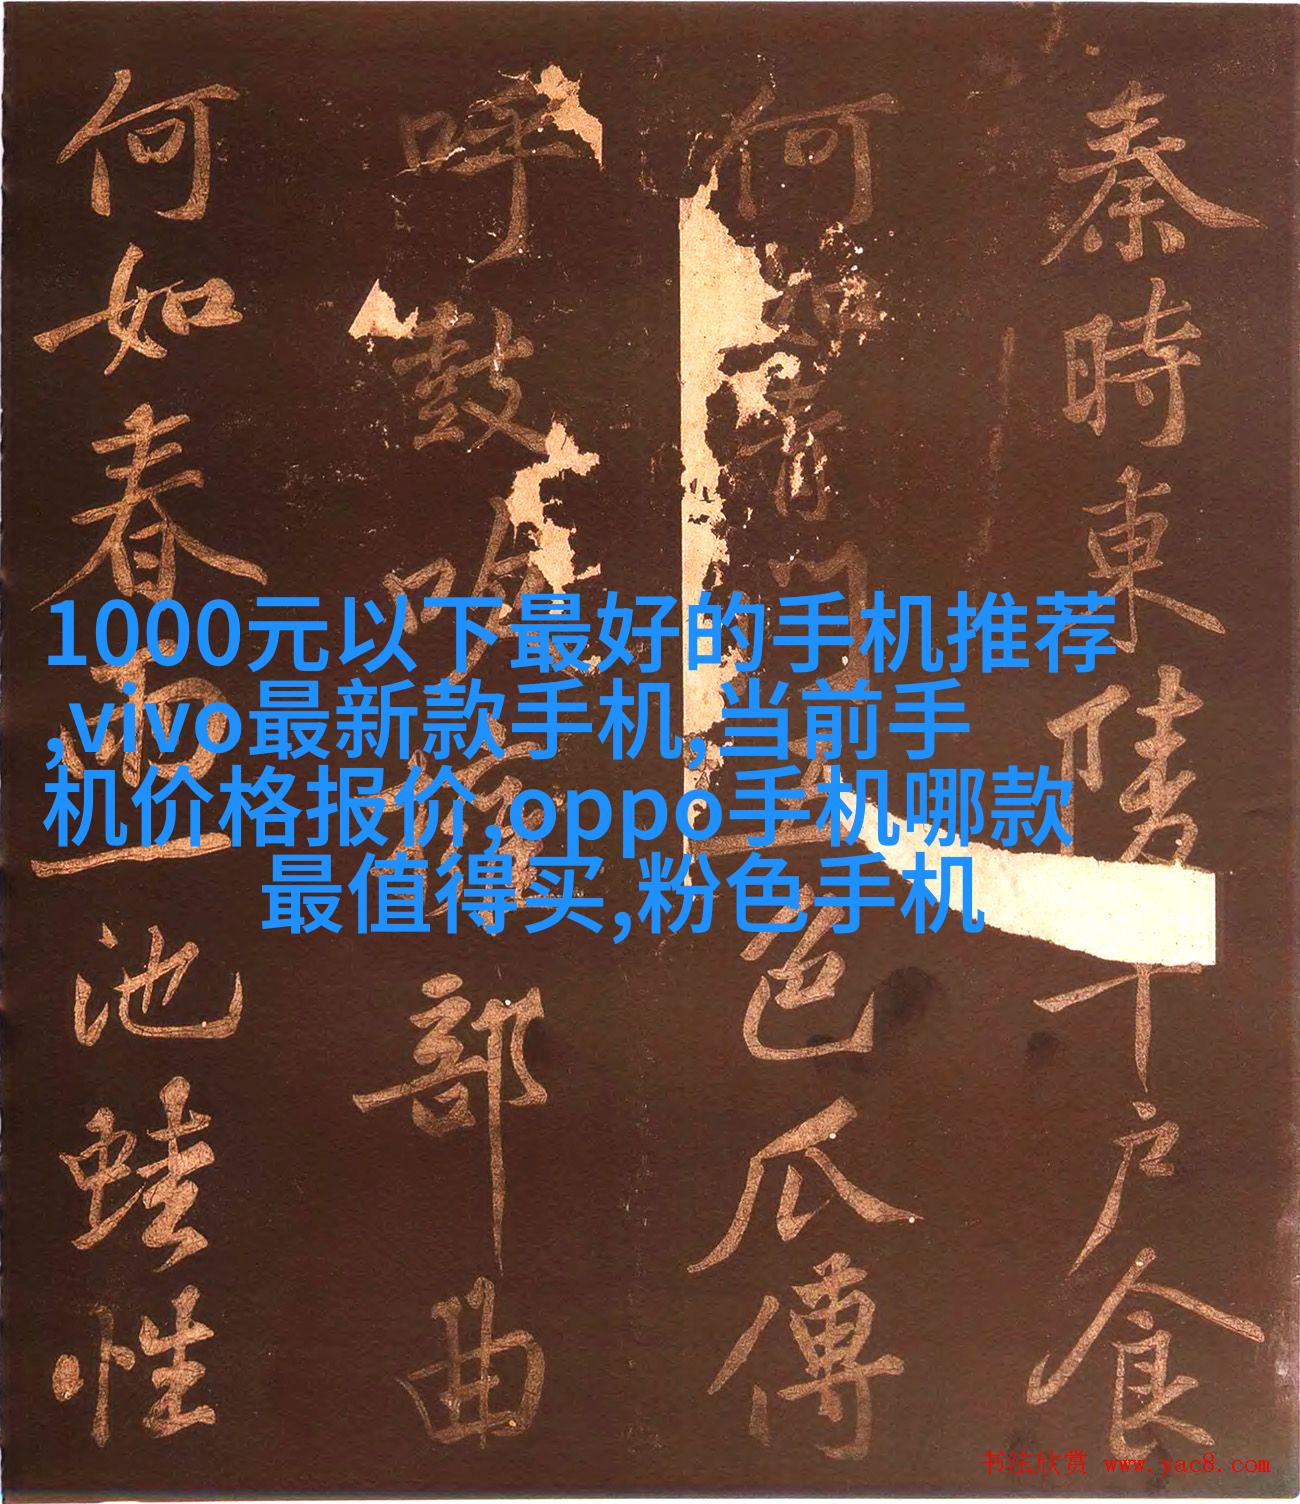 秦時東陵千戶食
何如青門五色瓜傳
呼鼓吹擁部曲
何如春雨一池蛙性
1000元以下最好的手机推荐
,vivo最新款手机,当前手
机价格报价,oppo手机哪款
最值得买,粉色手机
书法欣赏 www.yac8.com